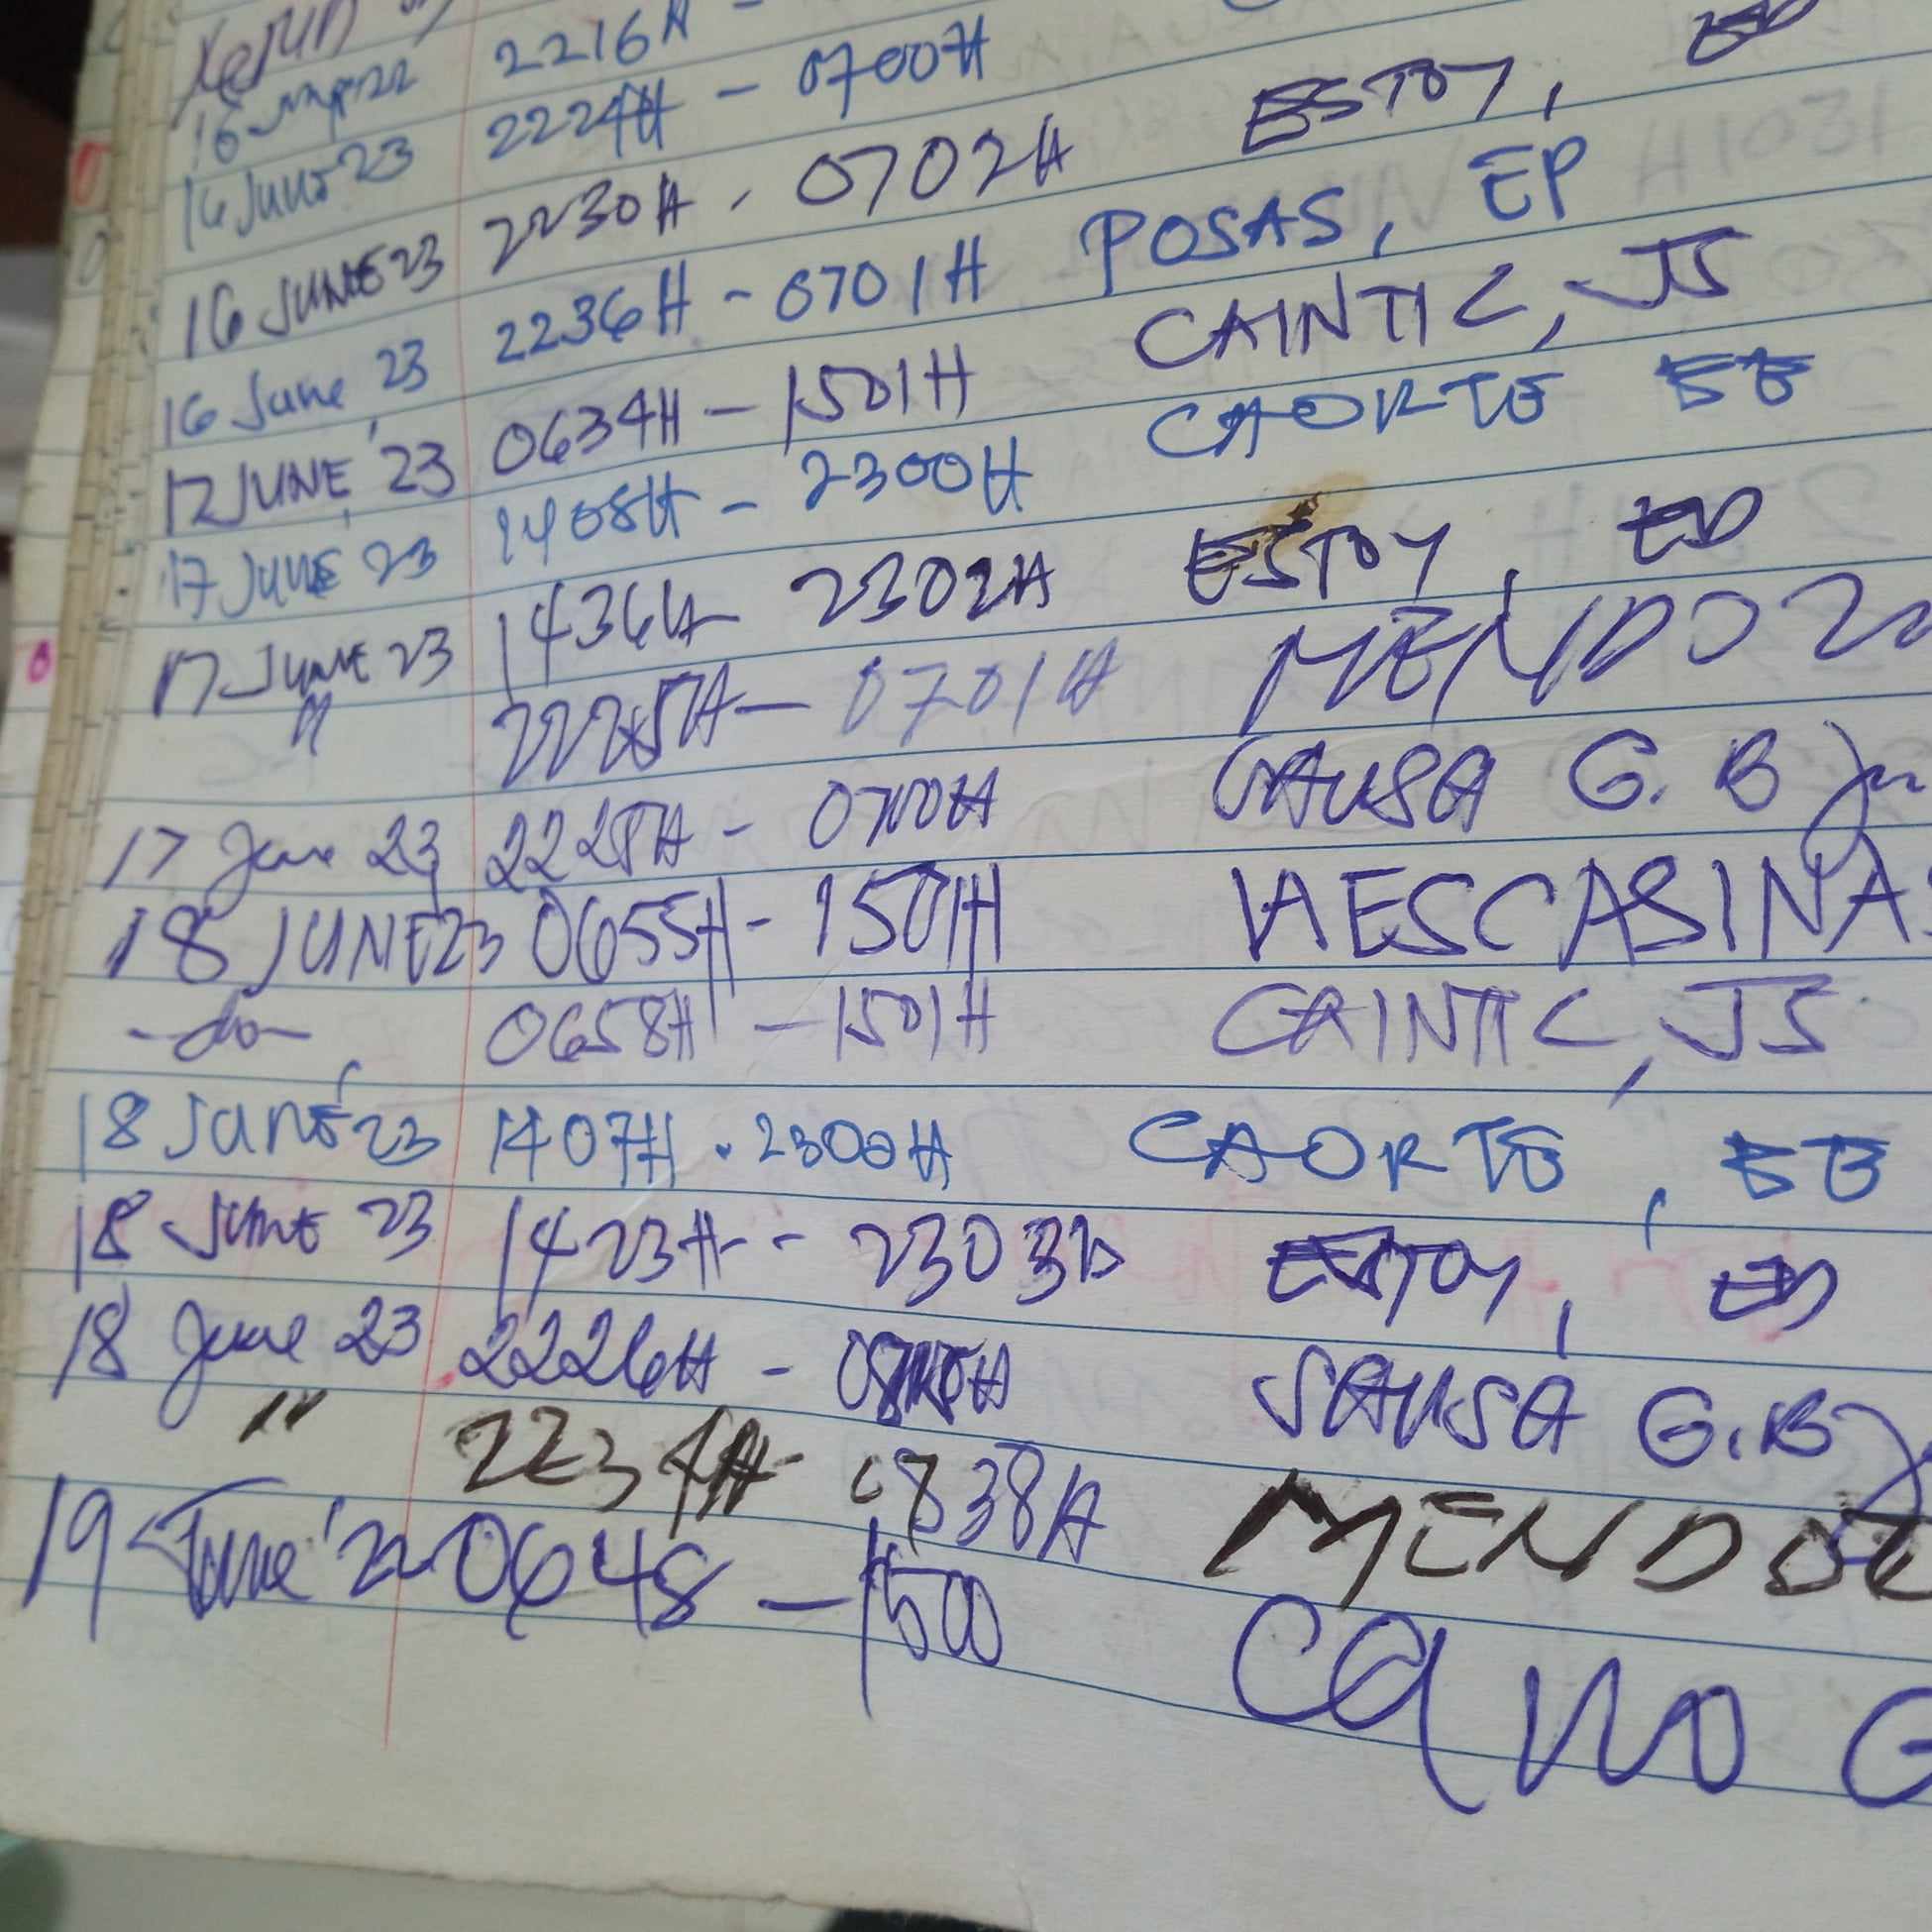 2216H -
16 June 23 2224H - 0700H
16 JUNE 23 2230H - 0702H ESTOY, ED
16 June, 23 2236H - 0701H POSAS, EP
17 JUNE, 23 0634H - 1501H CAINTIC, JS
17 JUNE, 23 1408H - 2300H CAORTE EE
17 JUNE 23 1436H 2302H ESTOY, ED
" 0701H MENDOZA
17 June 23 2228H - 0700H SAUSA G.B Jr
18 JUNE 23 0655H - 1501H VAESCASINAS
-do- 0658H - 1501H CAINTIC, JS
18 JUNE, 23 1407H - 2300H CAORTE, EE
18 JUNE 23 1423H - 2303H ESTOY, ED
18 June 23 2226H - SAUSA G.B
" 2234H - MENDOZ
19 June '22 0648 - 1500 Cano G